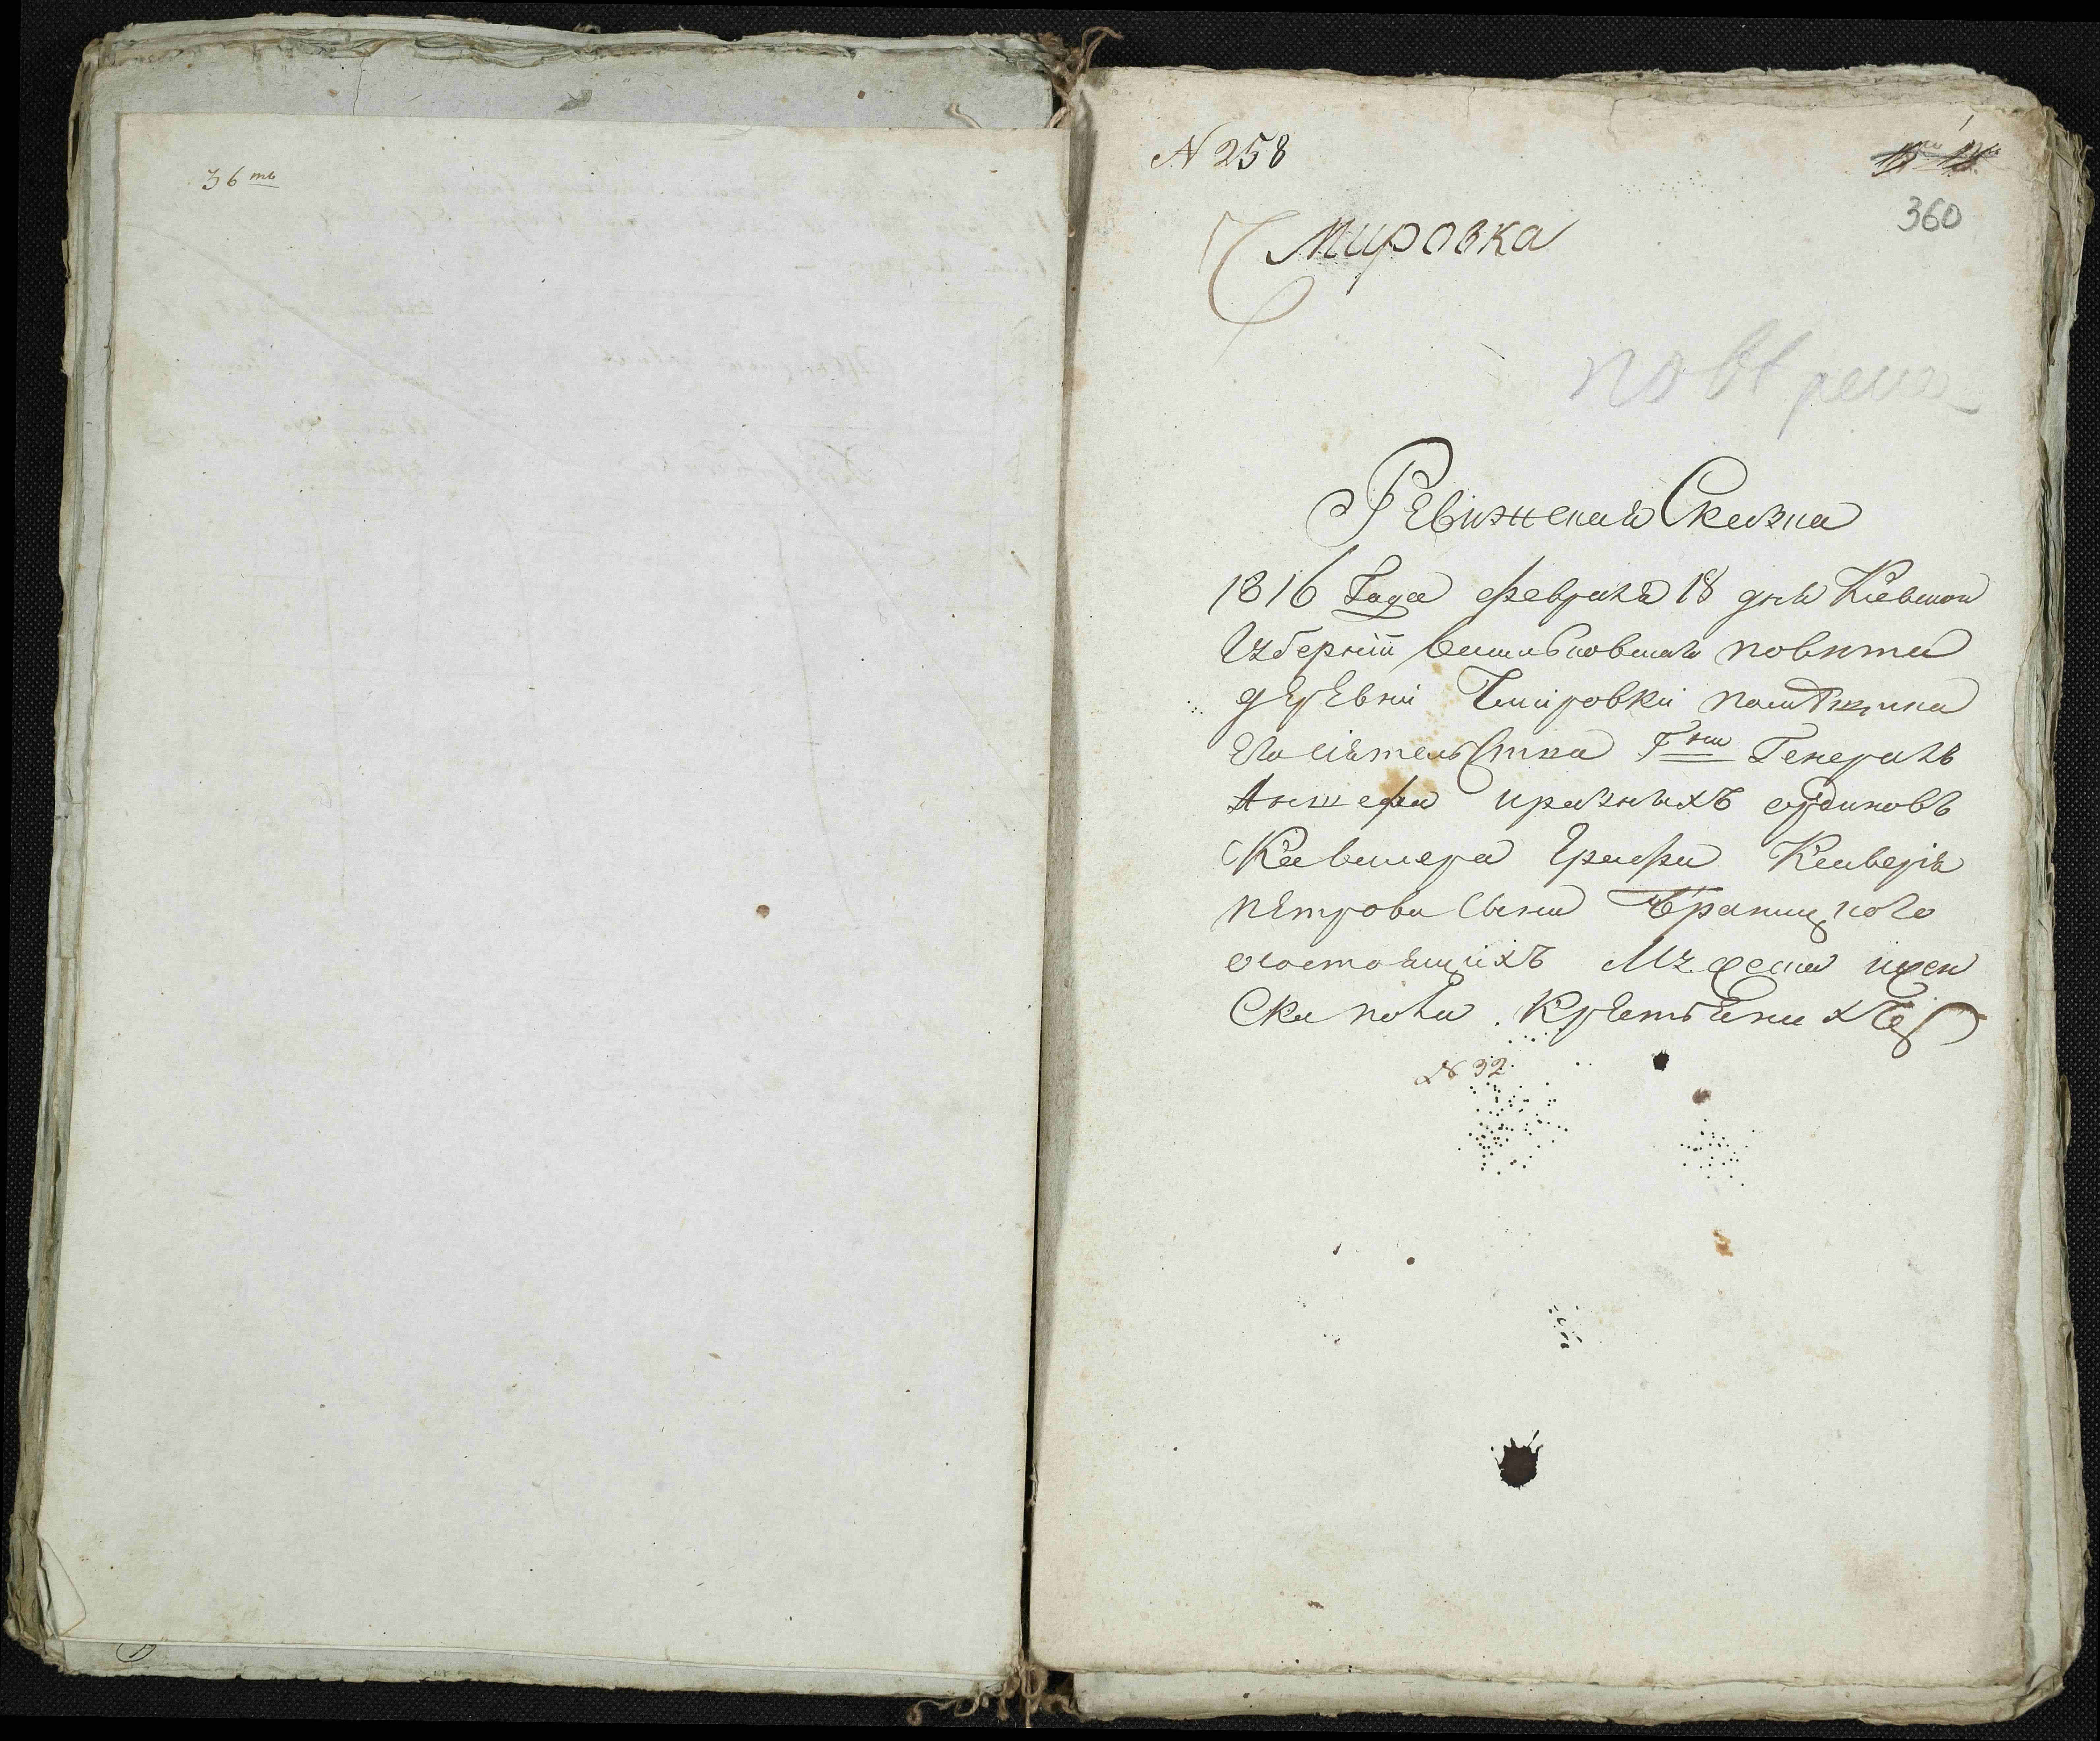 36 ть
N 258
360
Чмировка
Ревижская Сказка
1816 Года февраля 18 дня Киевской
Губернїи васильковскаго повѣта
деревни Чмировки помѣщика
его сіятельства Гдна Генералъ
Аншефа иразныхъ ординовъ
Кавалера Графа Ксаверія
петрова сына Браницкого
осостоящихъ Мужеска ижен
Ска пола крестьянахъ
N 32